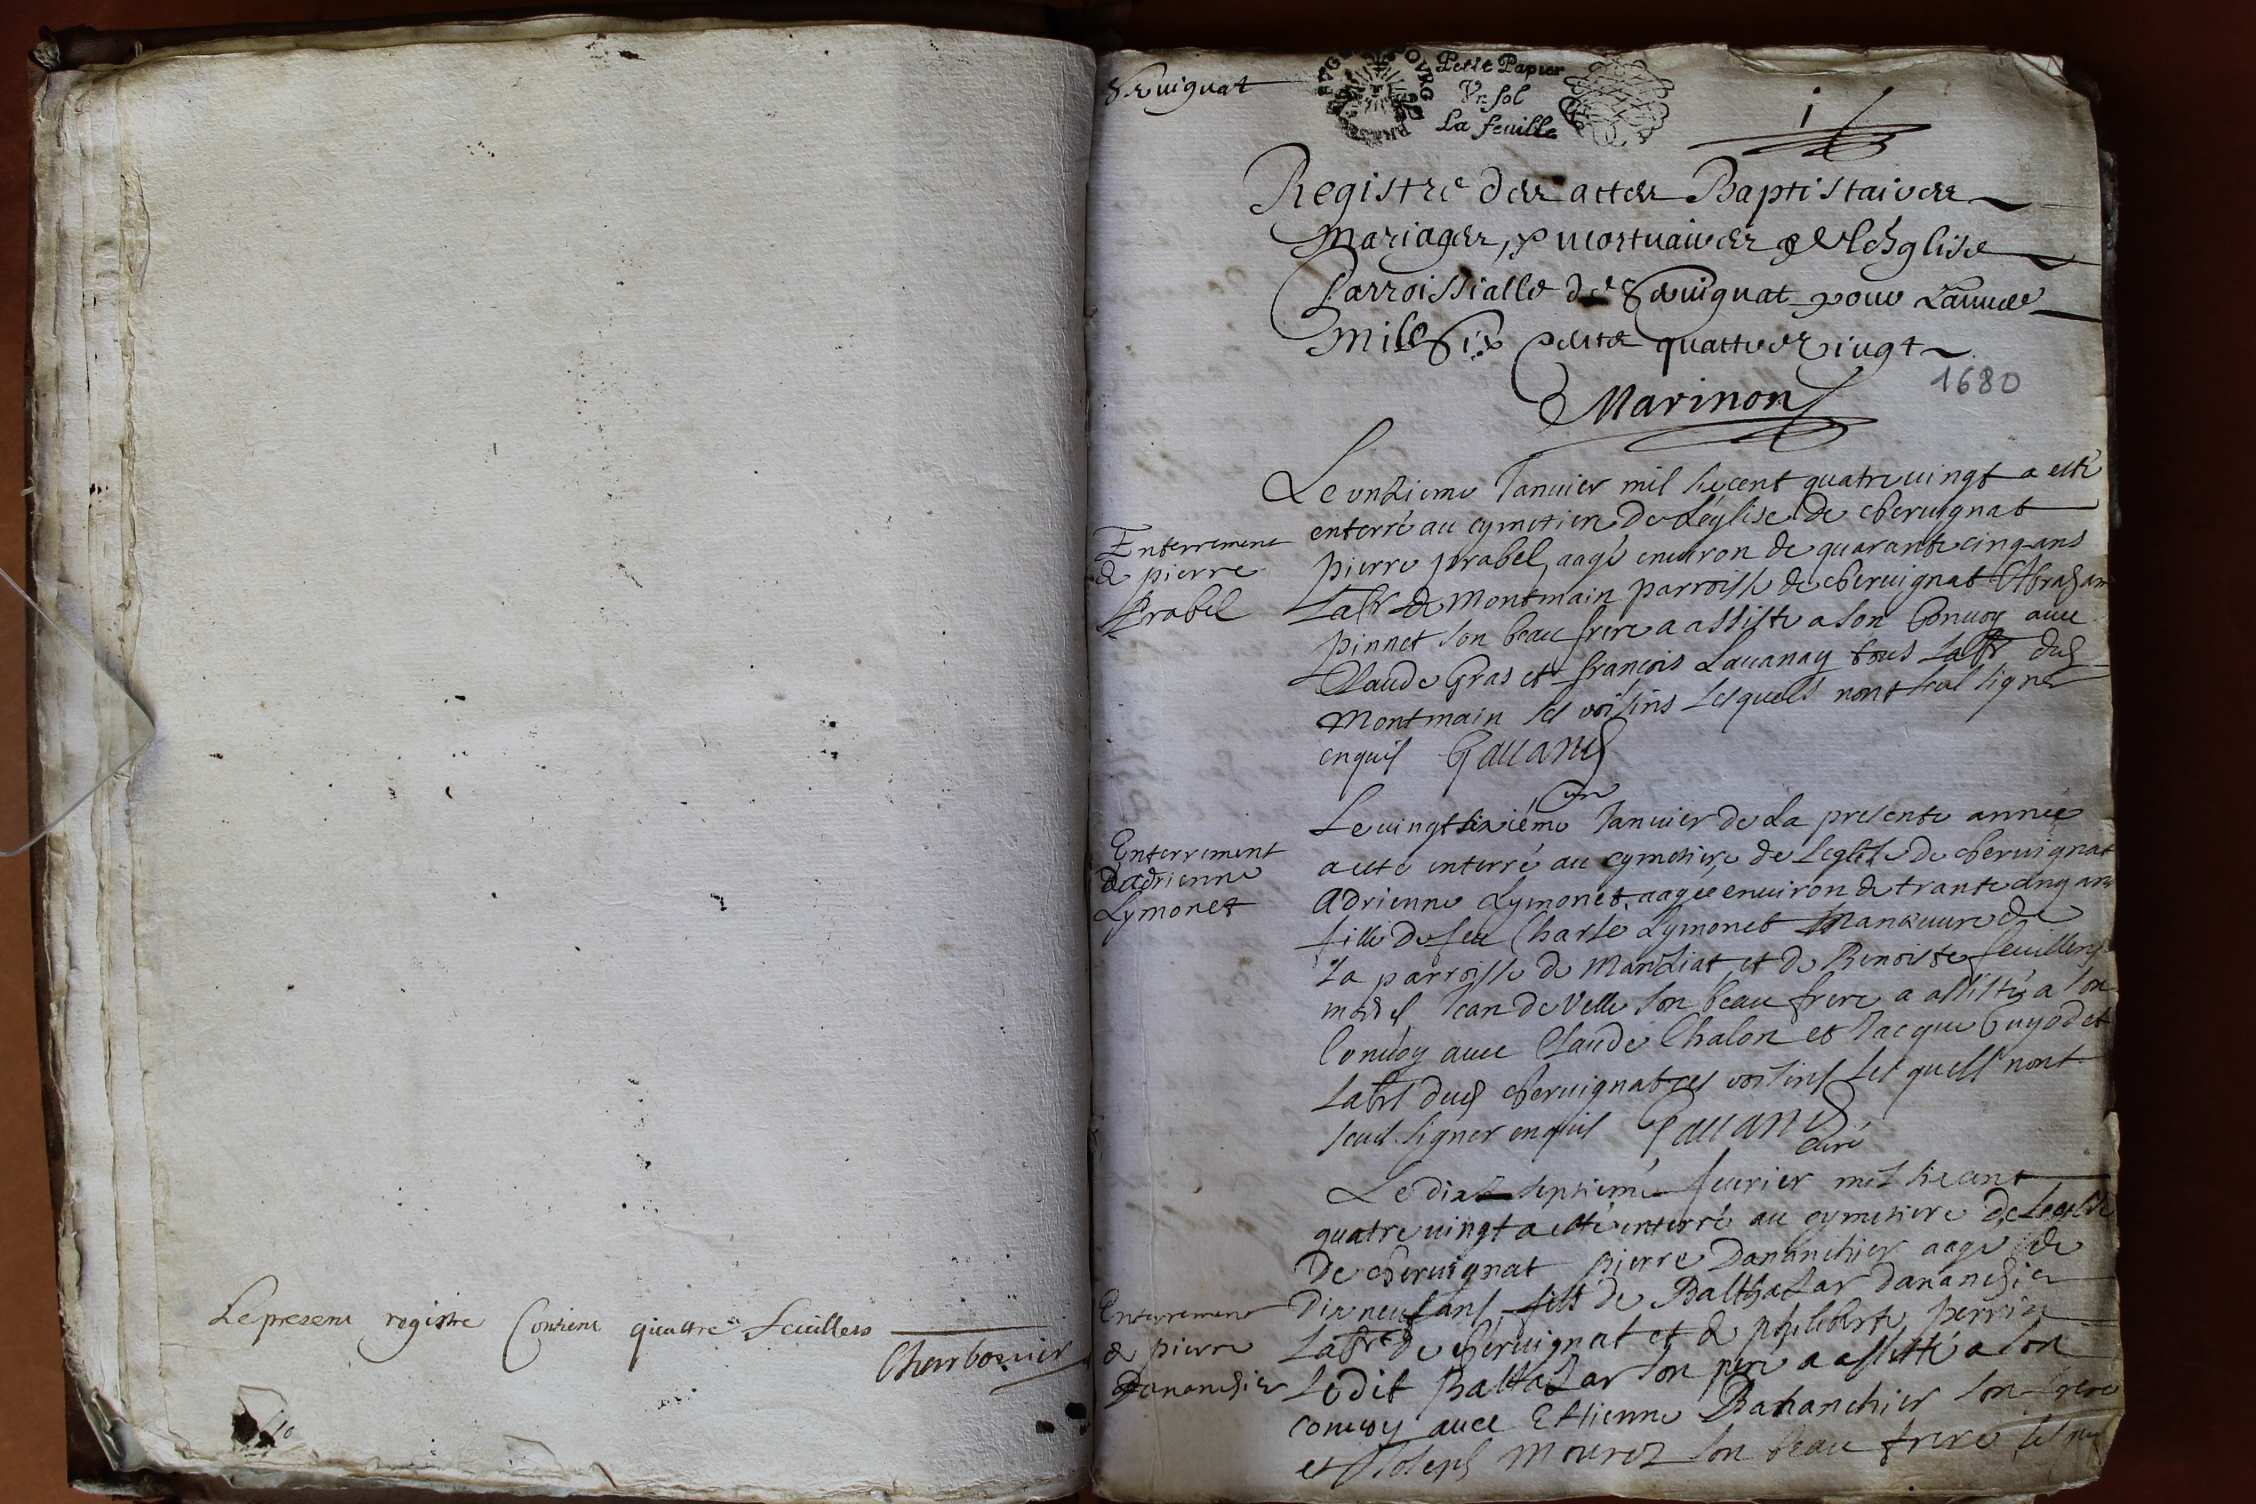 Le present registre Contient quattre feuillets
Charbonnier
Seruignat
Petit Papier
Vn sol
La feuille
i
Registre des actes Baptistaires
mariages, & mortuaires de Leglise
Parroissialle de Seruignat pour Lannee
mil Six cents quattre vingt
1680
Marinon
Enterrement
de pierre
prabel
Le onzieme Januier mil sixcent quatreuingt a esté
enterré au cymetiere de L'eglise de cheruignat
pierre prabel, aagé enuiron de quarante cinq ans
Labr de Montmain parroisse de cheruignat Abraham
pinnet son beau frere a assiste a son Conuoy auec
Claude Gras et francois Lauanay tous Labrs dud
Montmain ses voisins Lesquels nont seul signer
enquis Galland
Enterrement
Dadrienne
Lymonet
un
Le uingt sixiéme Januier de La presente année
a esté enterré au cymetiere de Leglise de cheruignat
Adrienne Lymonet, aagée enuiron de trante cinq ans
fille de feu Charle Lymonet Manœuure de
La parroisse de Manziat et de Benoiste
Jean de Velle son beau frere a assisté a son
Conuoy auec Claude Chalon et Jacque Guyodet
Labrs dud cheruignat ses voisins Lesquells nont
seul signer enquis Galland
curé
Enterrement
de pierre
Dananchier
Le dix septieme feurier mil sixcent
quatreuingt a esté enterré au cymetiere de Leglise
De cheruignat pierre Dananchier aagé de
Dix neuf ans, fils de Balthazar dananchier
Labr de cheruignat et de philiberte perrin
Ledit Baltazar son pere a assisté a son
conuoy auec Estienne Dananchier son frere
et Joseph Mourez son beau frere